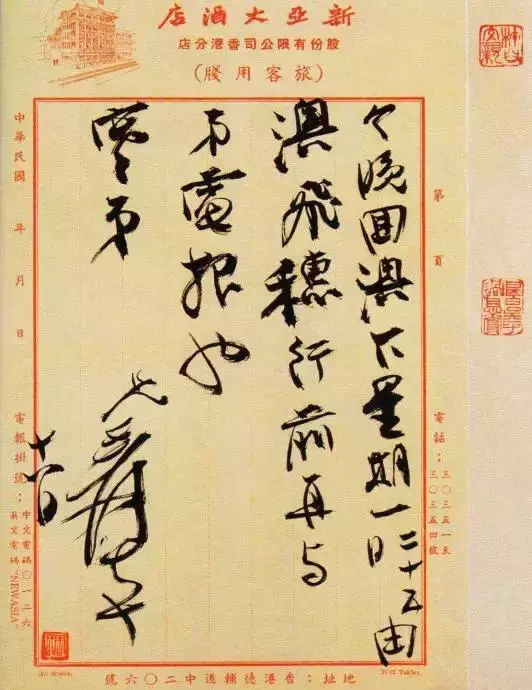 新亞大酒店
股份有限公司香港分店
(旅客用牋)
第 頁
電話:三〇三五一至
三〇三五四號
今晚囬澳下星期一二十五日由
澳飛穗行前再与
弟電報也
弟
兄爰
中華民國 年 月 日
電報掛號:中文電碼〇一二六
英文電碼"NEWASIA"
地址:香港德輔道中二〇六號